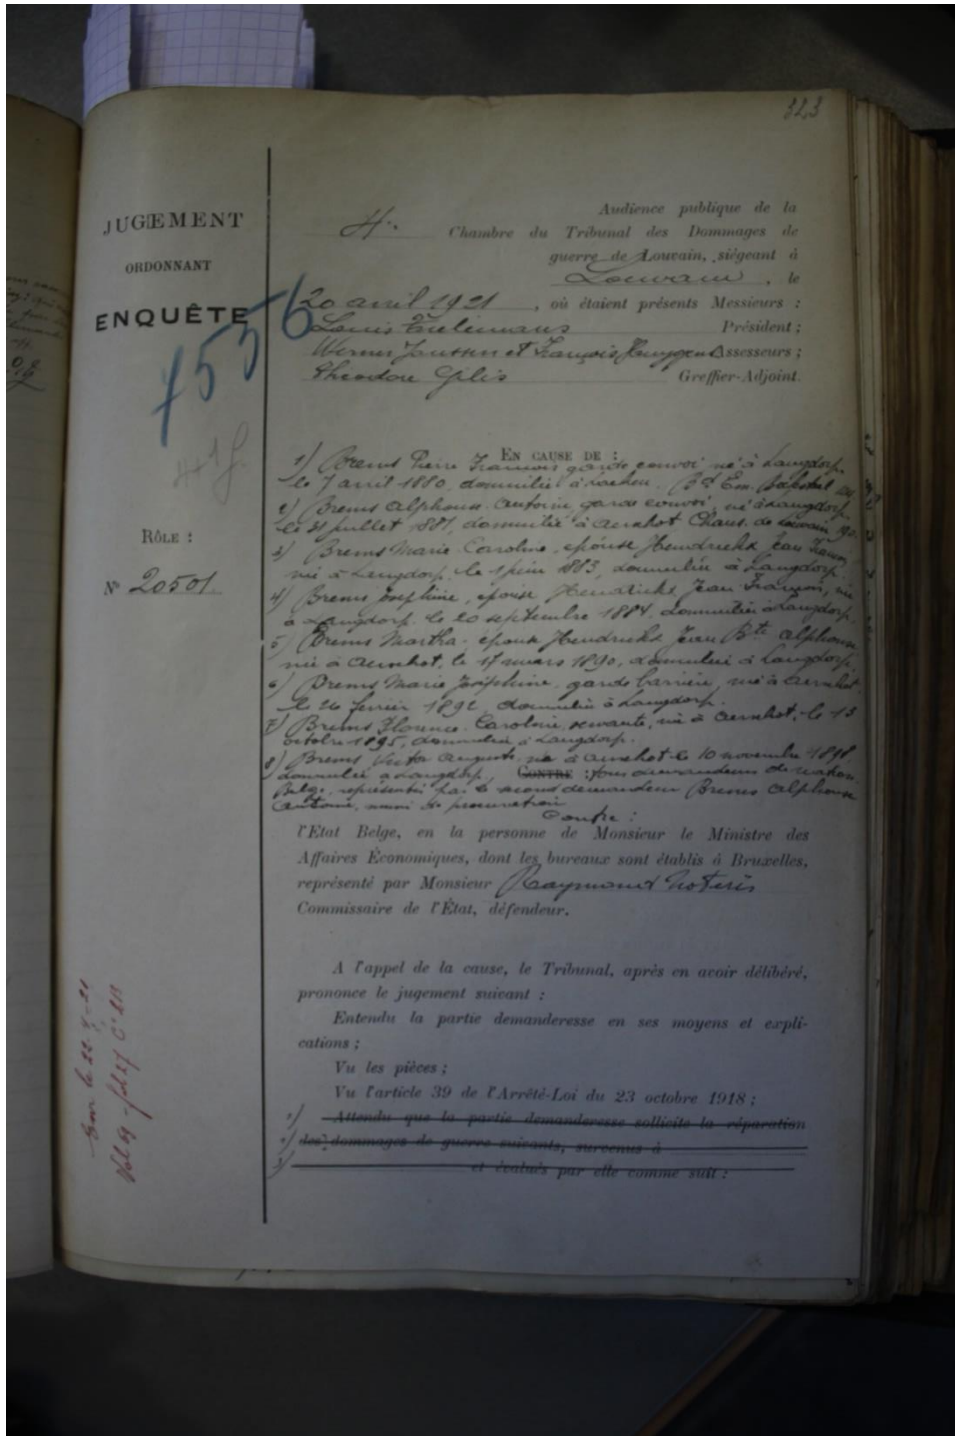 323
JUGEMENT
ORDONNANT
ENQUÊTE
7556
Rôle :
N° 20501.
Audience publique de la
4e. Chambre du Tribunal des Dommages de
guerre de Louvain, siégeant à
Louvain, le
20 avril 1921, où étaient présents Messieurs :
Louis Tielemans Président ;
Werner Janssen et François Assesseurs ;
Théodore Gilis Greffier-Adjoint.
En cause de :
1) Brems Pierre François garde convoi, né à Langdorp
le 7 avril 1880, domicilié à Laeken. Bd Em. Bockstael
2) Brems Alphonse Antoine garde convoi, né à Langdorp
le 31 juillet 1881, domicilié à Aerschot Chaus. de Louvain 190
3) Brems Marie Caroline, épouse Hendrickx Jean François
née à Langdorp, le 1 juin 1883, domiciliée à Langdorp.
4) Brems Joséphine, épouse Hendrickx Jean François, née
à Langdorp le 20 septembre 1884, domiciliée à Langdorp.
5) Brems Martha, épouse Hendrickx Jean Bte Alphonse
née à Aerschot, le 17 mars 1890, domiciliée à Langdorp,
6) Brems Marie Joséphine, garde barrière, née à Aerschot
le 26 fevrier 1892, domiciliée à Langdorp.
7) Brems Florence Caroline, servante, née à Aerschot, le 13
octobre 1895, domiciliée à Langdorp.
8) Brems Victor Auguste né à Aerschot le 10 novembre 1898,
domicilié à Langdorp, Contre : tous demandeurs de nation
Belge, représentés par le second demandeur Brems Alphonse
Antoine, muni de procuration
Contre :
l'État Belge, en la personne de Monsieur le Ministre des
Affaires Économiques, dont les bureaux sont établis à Bruxelles,
représenté par Monsieur Raymond Noteris
Commissaire de l'État, défendeur.
A l'appel de la cause, le Tribunal, après en avoir délibéré,
prononce le jugement suivant :
Entendu la partie demanderesse en ses moyens et expli-
cations ;
Vu les pièces ;
Vu l'article 39 de l'Arrêté-Loi du 23 octobre 1918 ;
1) Attendu que la partie demanderesse sollicite la réparation
2) des dommages de guerre suivants, survenus à
3) et évalués par elle comme suit :